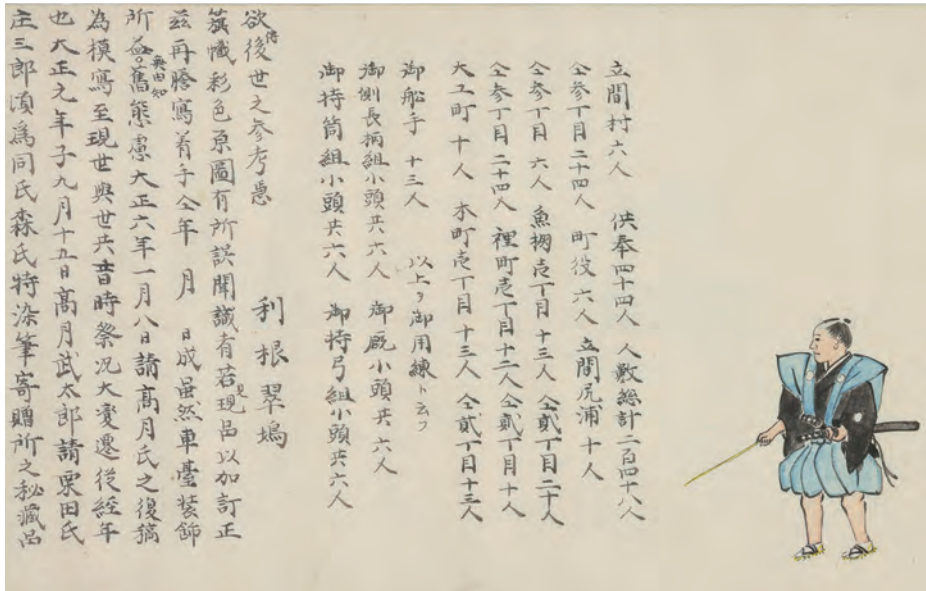 立間村六人　供奉四十四人　人数総計二百四十八人
仝参丁目二十四人　町役六人　立間尻浦十人
仝参丁目六人　魚棚壱丁目十三人　仝貳丁目二十人
仝参丁目二十四人　裡町壱丁目十二人　仝貳丁目十人
大工町十人　本町壱丁目十三人　仝貳丁目十三人
御船手十三人　以上ヲ御用練ト云フ
御側長柄組小頭共六人　御厩小頭共六人
御持筒組小頭共六人　御持弓組小頭共六人
利根翠塢
欲供後世之参考焉
籏幟彩色原圖有所誤聞識者若現品以加訂正
茲再謄寫着手仝年　月　日成虽然車臺装飾
所無由知舊態慮大正六年一月八日請高月氏之復稿
為模寫至現世與世共昔時祭况大変遷従経年
也大正元年子九月十五日高月武太郎請栗田氏
庄三郎須為同氏森氏特染筆寄贈所之秘藏品